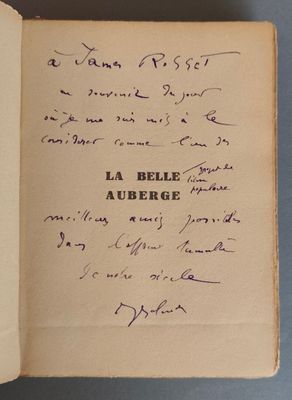 à James Rosset
en souvenir du jour
où je me suis mis à le
considérer comme l'un des
LA BELLE
AUBERGE
populaire
meilleurs amis possibles
dans l'affreux tumulte
de notre siècle